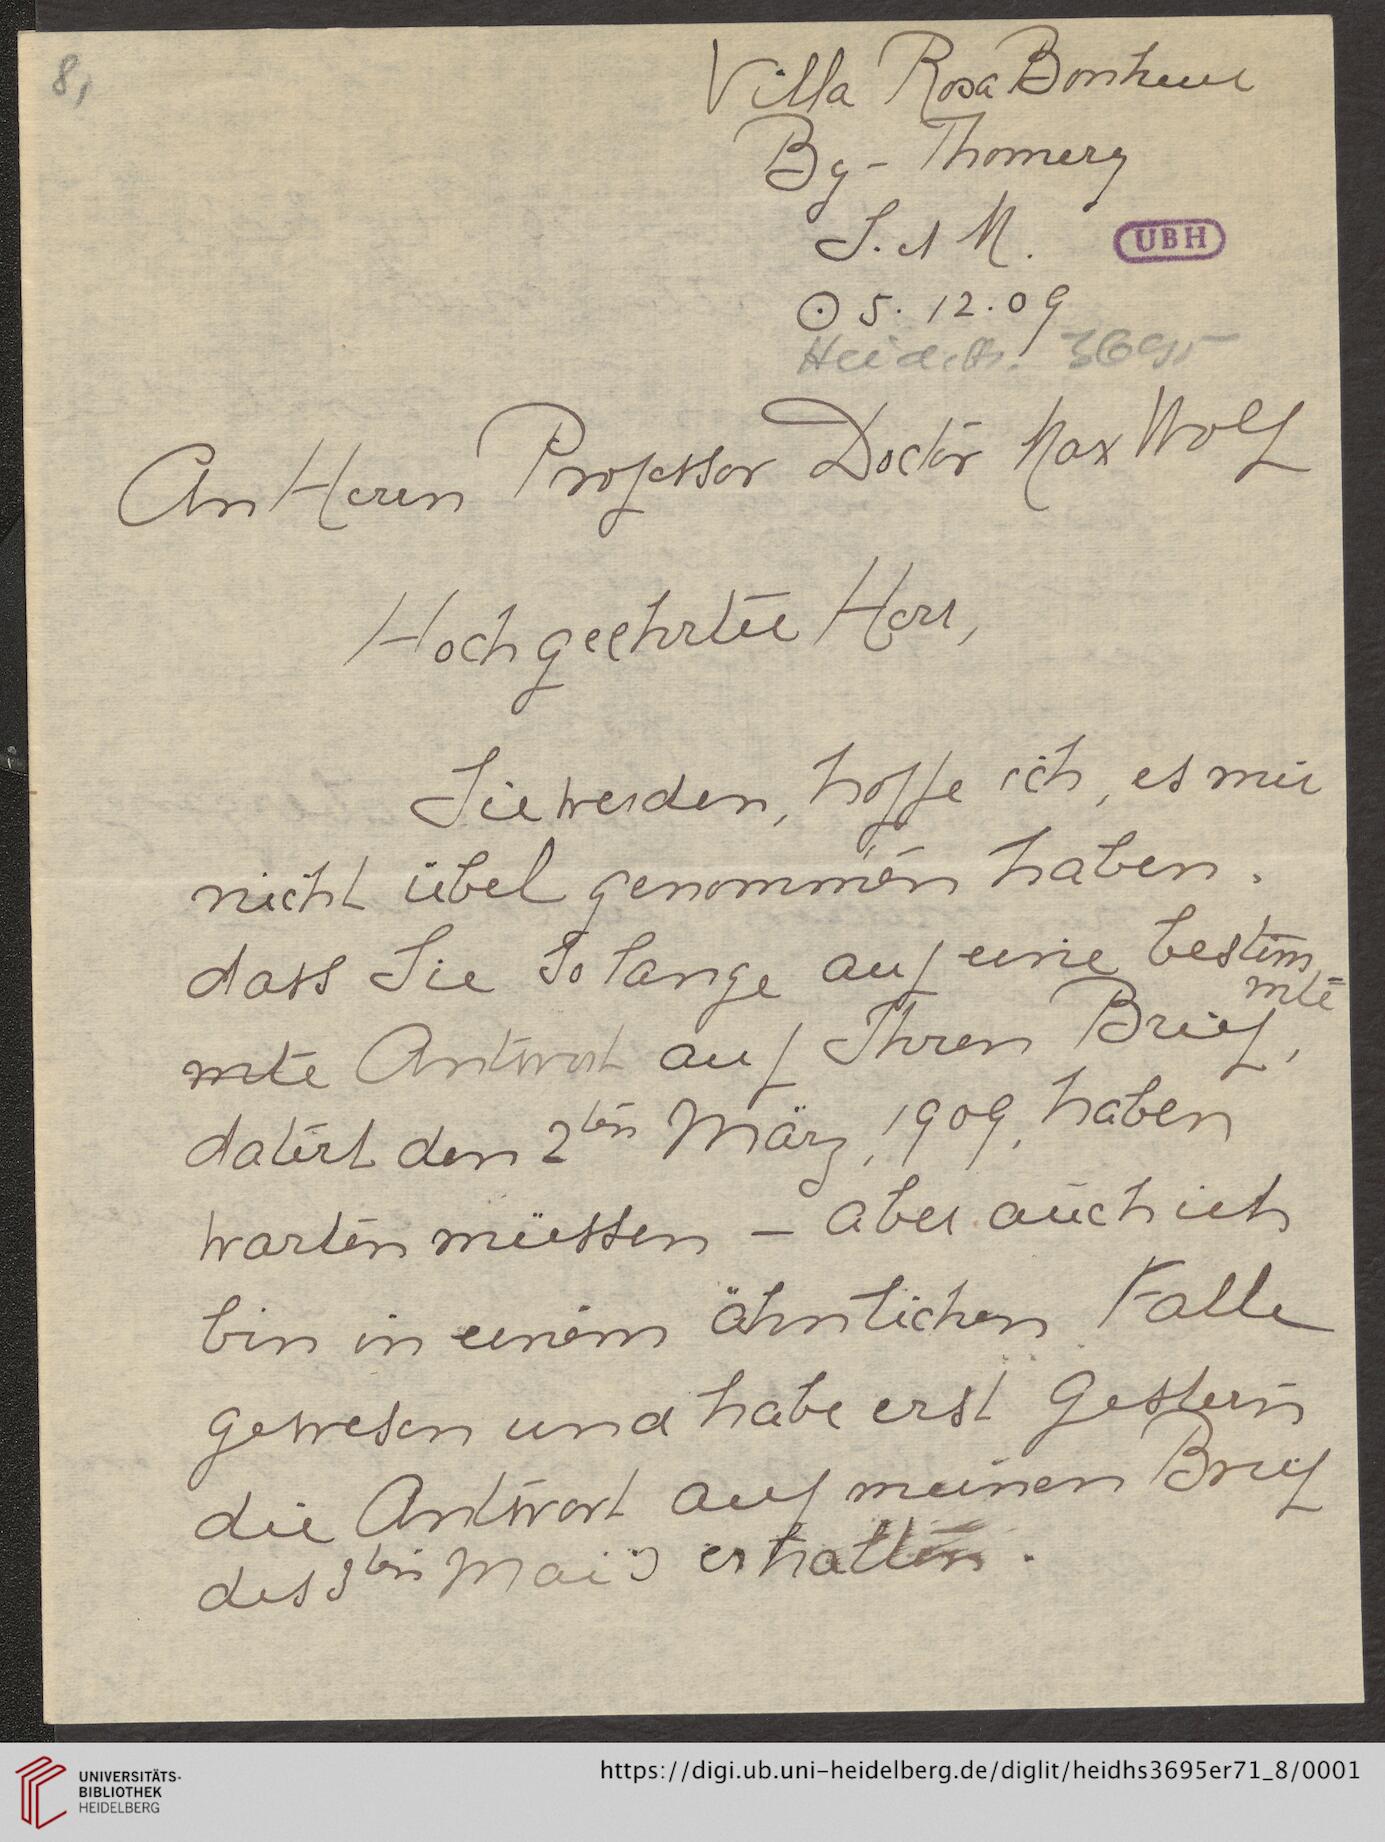 8,
Villa Rosa Bonheur
By-Thomery
S. et M.
UBH
☉ 5. 12. 09
Heid. Hs. 3695
An Herrn Professor Doctor Max Wolf
Hochgeehrter Herr,
Sie werden, hoffe ich, es mir
nicht übel genommen haben.
dass Sie so lange auf eine bestim
mte
mte Antwort auf Ihren Brief,
datirt den 2ten März, 1909, haben
warten müssen – aber auch ich
bin in einem ähnlichen Falle
gewesen und habe erst gestern
die Antwort auf meinen Brief
des 3ten Mai's erhalten.
UNIVERSITÄTS-
BIBLIOTHEK
HEIDELBERG
https://digi.ub.uni-heidelberg.de/diglit/heidhs3695er71_8/0001